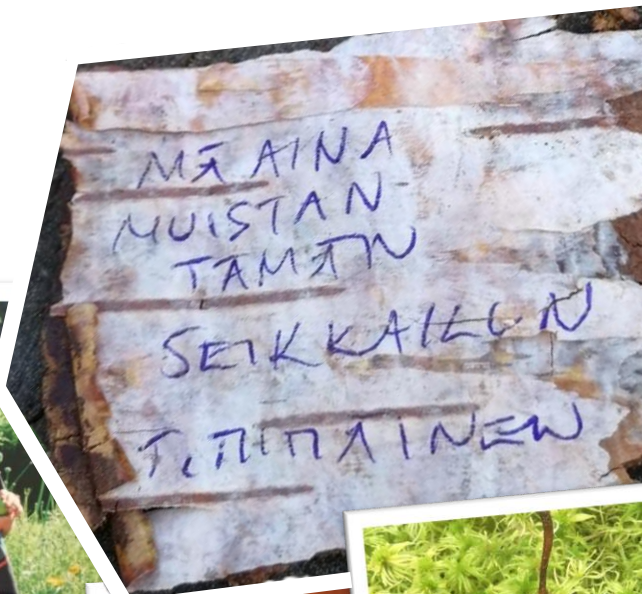 MÄ AINA
MUISTAN
TÄMÄN
SEIKKAILUN
T. PIPPAINEN